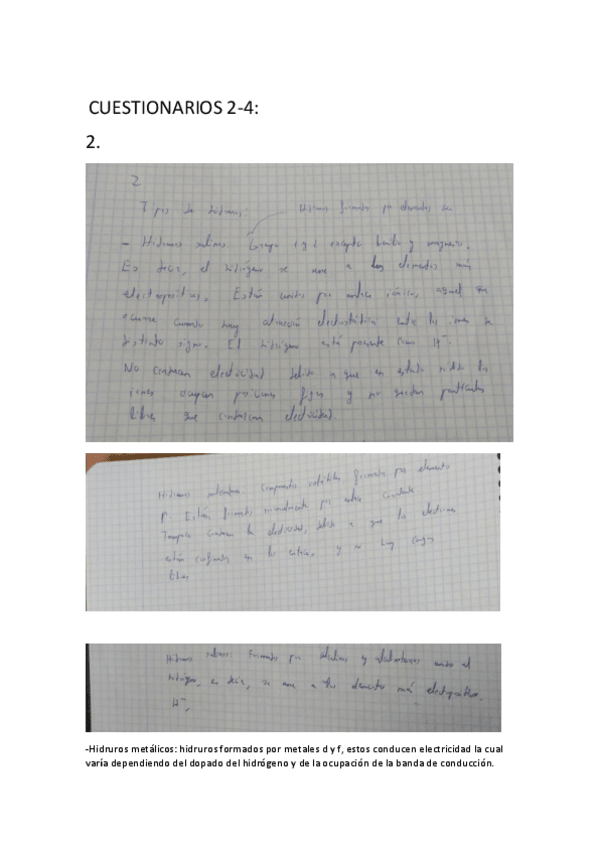 CUESTIONARIOS 2-4:
2.
2
Tipos de hidruros: Hidruros formados por elementos
- Hidruros salinos Grupo 1 y 2 excepto berilio y magnesio.
Es decir, el hidrógeno se une a los elementos más
electropositivos. Están unidos por enlace iónico, aquel que
ocurre cuando hay atracción electrostática entre los iones de
distinto signo. El hidrógeno está presente como H⁻.
No conducen electricidad debido a que en estado sólido los
iones ocupan posiciones fijas y no quedan partículas
libres que conduzcan electricidad.
Hidruros compuestos formados por elementos
p. Están formados normalmente por enlace covalente
Tampoco conducen la electricidad, debido a que los electrones
están en los enlaces, y no hay cargas
libres
Hidruros salinos: Formados por alcalinos y alcalinotérreos unidos al
hidrógeno, es decir, se une a los elementos más electropositivos.
H⁻,
-Hidruros metálicos: hidruros formados por metales d y f, estos conducen electricidad la cual
varía dependiendo del dopado del hidrógeno y de la ocupación de la banda de conducción.